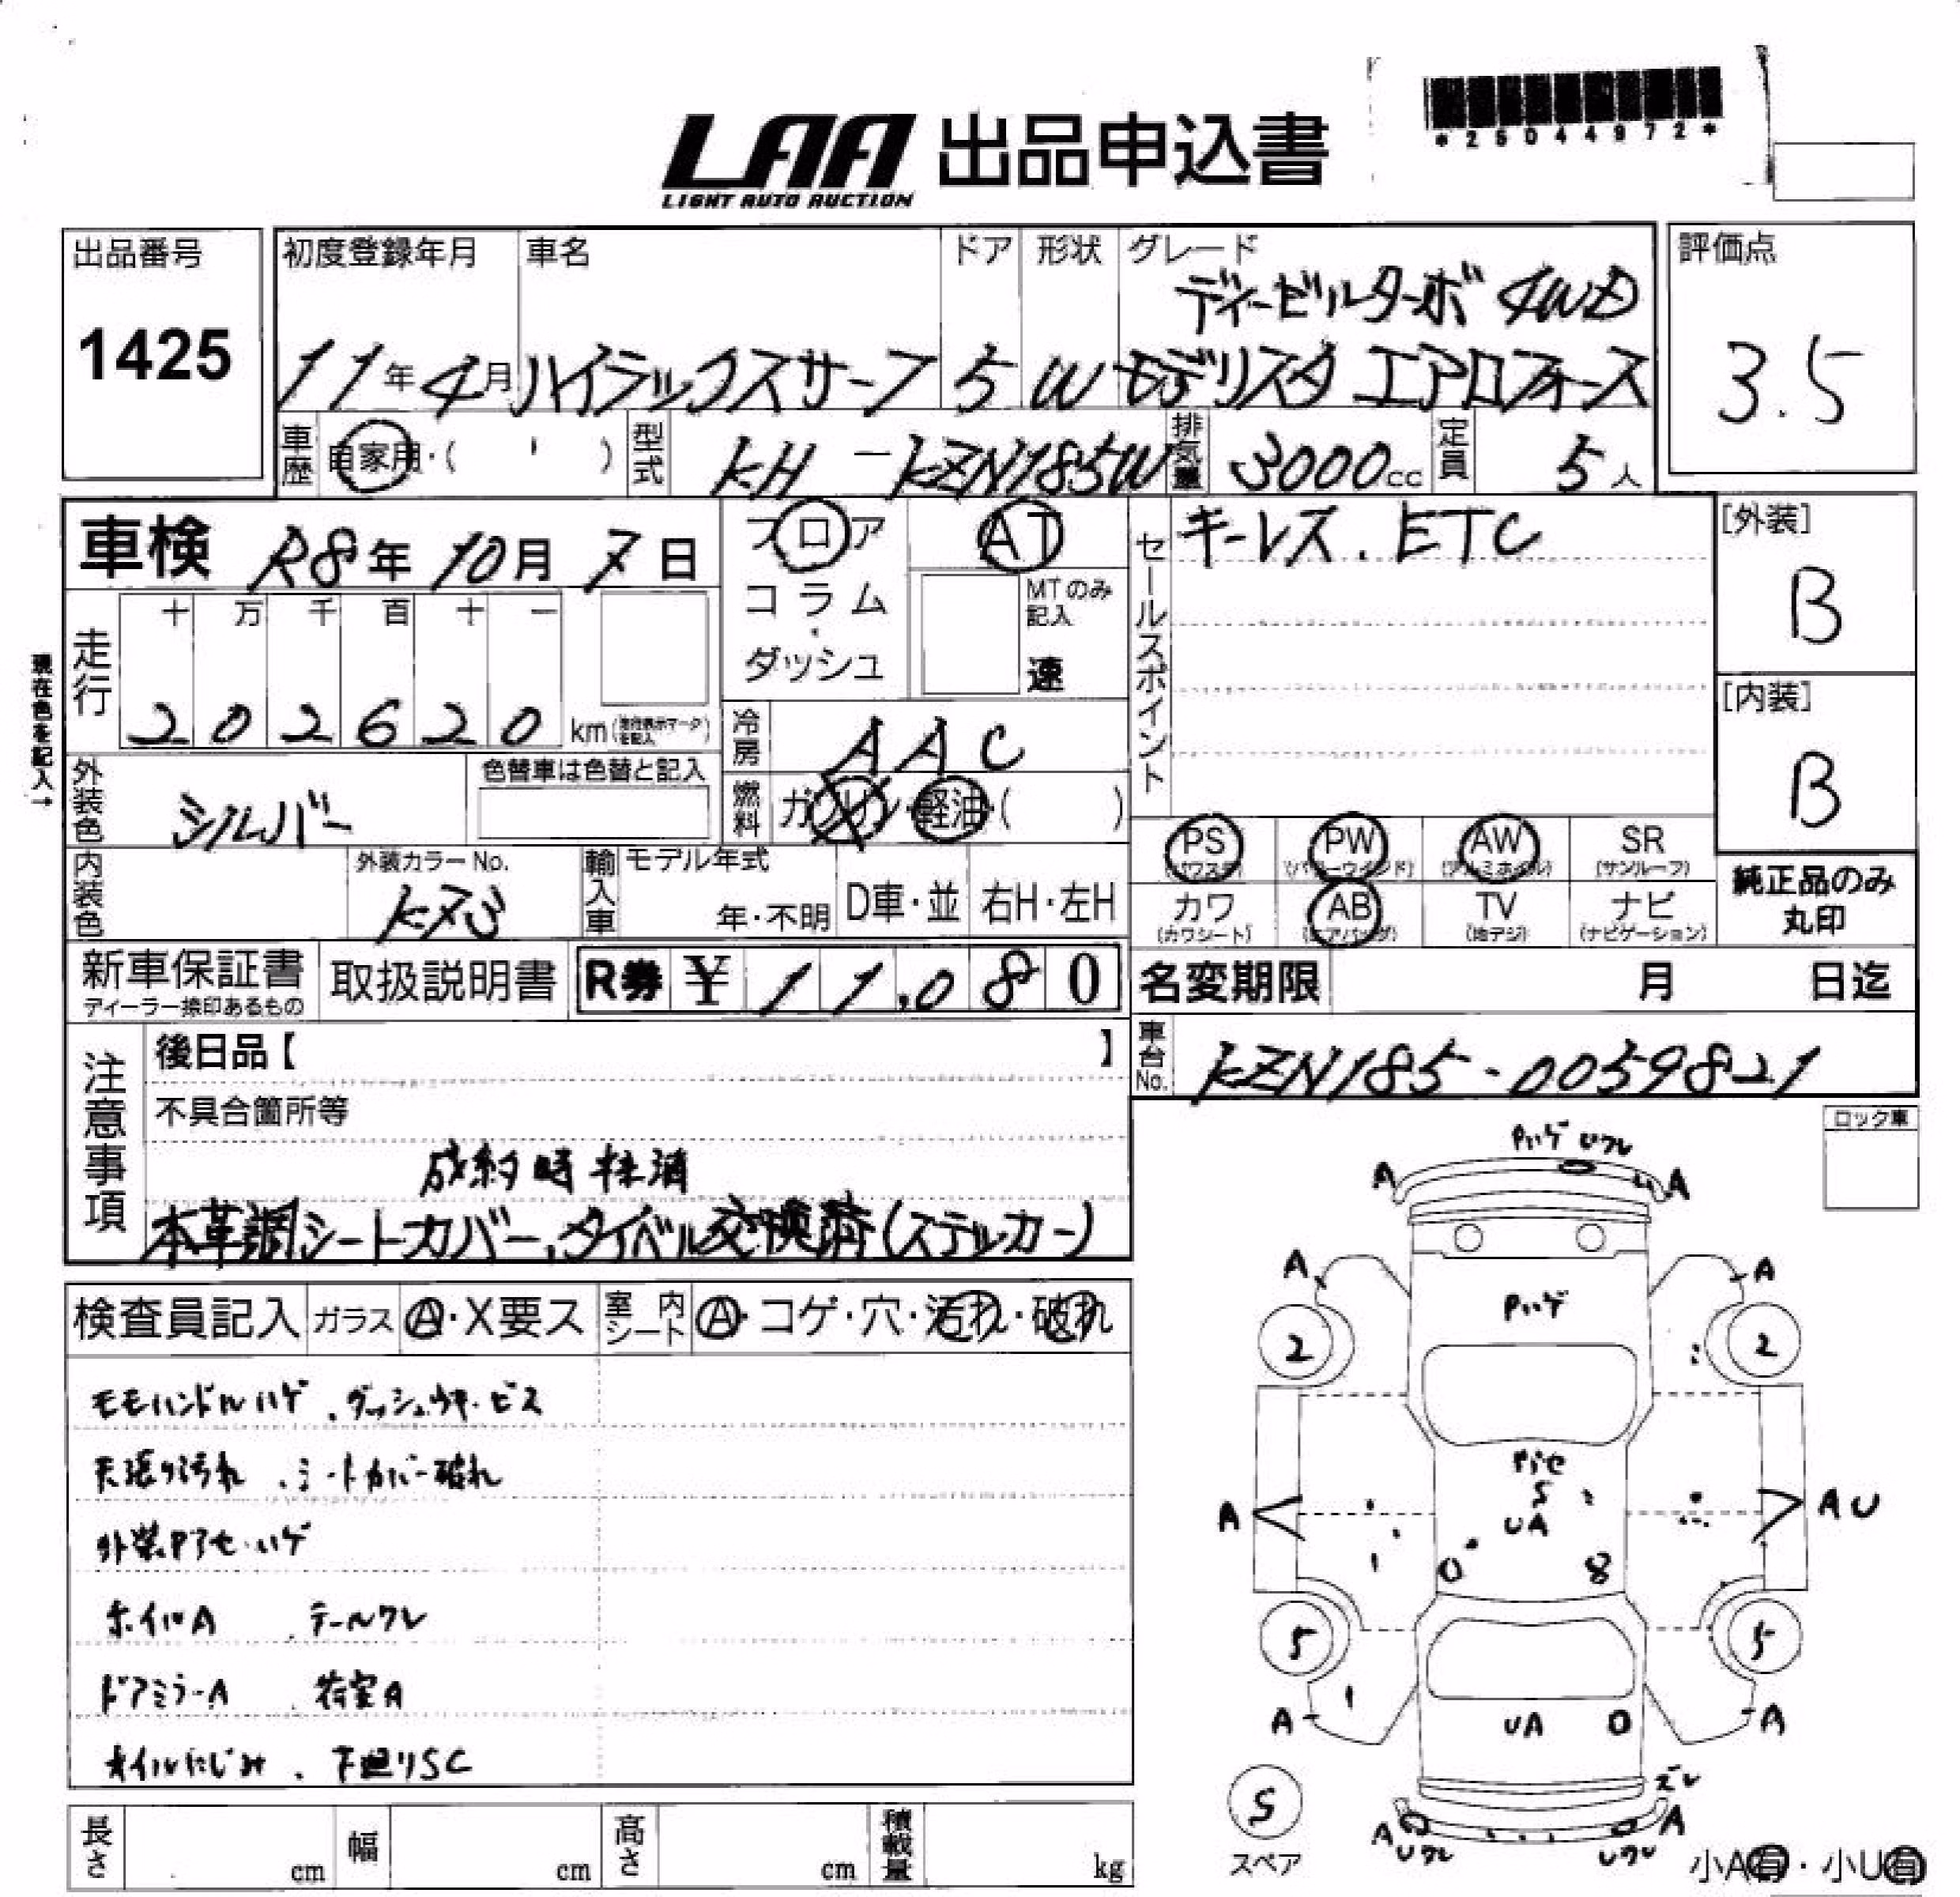 LAA 出品申込書
LIGHT AUTO AUCTION
*25044972*
出品番号
1425
初度登録年月 車名 ドア 形状 グレード
ディーゼルターボ 4WD
11年4月 ハイラックスサーフ 5 W モデリスタ エアロフォース
評価点
3.5
車歴 自家用・( ) 型式 KH-KZN185W 排気量 3000cc 定員 5人
車検 R8年 10月 7日
フロア
コラム
・
ダッシュ
AT
MTのみ記入
速
セールスポイント
キーレス.ETC
[外装]
B
[内装]
B
現在色を記入→
走行
十 万 千 百 十 一
2 0 2 6 2 0 km
冷房 AAC
外装色 シルバー
色替車は色替と記入
燃料 ガソリン・軽油・( )
PS (パワステ) PW (パワーウィンド) AW (アルミホイル) SR (サンルーフ)
カワ (カワシート) AB (エアバッグ) TV (地デジ) ナビ (ナビゲーション)
純正品のみ
丸印
内装色
外装カラーNo.
輸入車 モデル年式
年・不明 D車・並 右H・左H
新車保証書
ディーラー捺印あるもの
取扱説明書
R券 ¥ 11,080
名変期限 月 日迄
車台No. KZN185-0059821
注意事項
後日品【 】
不具合箇所等
成約時抹消
本革調シートカバー,タイベル交換済(ステッカー)
検査員記入 ガラス A・X要ス 室内シート A・コゲ・穴・汚れ・破れ
モモハンドルハゲ .ダッシュウキ.ビス
天張り汚れ .シートカバー破れ
外装Pアセ.ハゲ
ホイルA .テールワレ
ドアミラーA .荷室A
オイルにじみ . 下廻りSC
長さ cm 幅 cm 高さ cm 積載量 kg
ロック車
Pハゲ Uワレ
A A
A A
Pハゲ
2 2
Pアセ
S
UA
A AU
0 8
5 5
UA 0
A A
ズレ
S
スペア
A A
Uワレ Uワレ
小A有・小U有